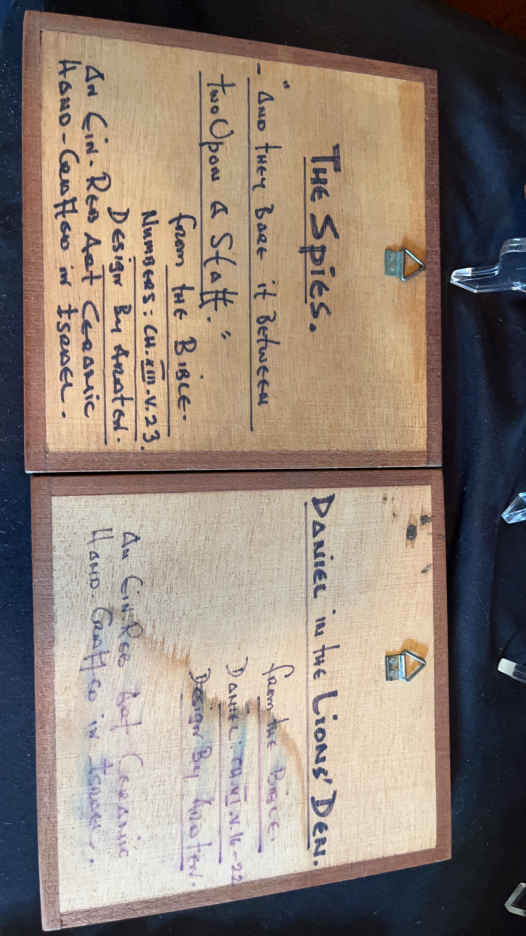 THE SPIES.
- "AND THEY BARE it BETWEEN
two Upon a Staff."
from the BIBLE.
NUMBERS: CH. XIII. V. 23.
DESIGN By ARATEN.
AN Ein-Reb Art CERAMIC
HAND-CRAftED in ISRAEL.
DANIEL in the LIONS' DEN.
from the BIBLE.
DANIEL: CH. VI. V. 16-22
DESIGN By ARATEN.
AN Ein-Reb Art CERAMIC
HAND-CRAftED in ISRAEL.